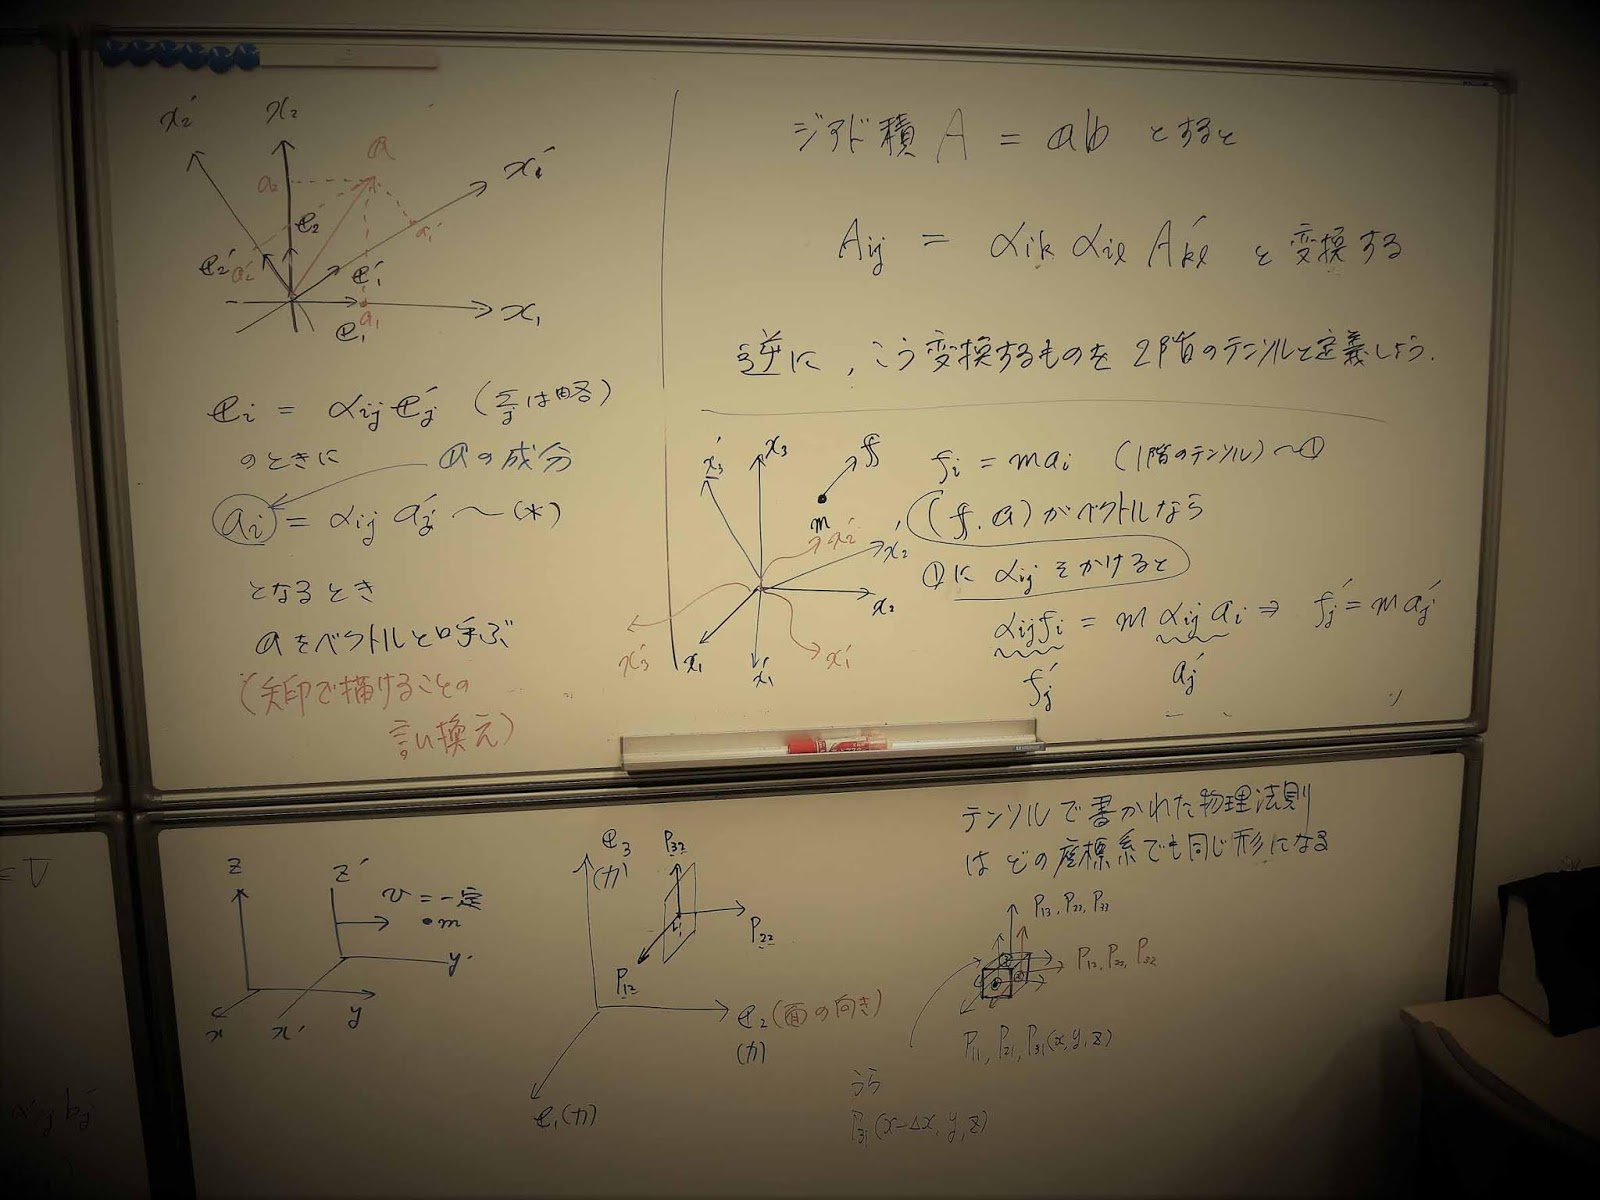 x₂′ x₂ x₁′
a
a₂
e₂ a₁′
e₂′ a₂′ e₁′
e₁ a₁ x₁
eᵢ = αᵢⱼ eⱼ′ (Σⱼは略)
のときに aの成分
aᵢ = αᵢⱼ aⱼ′ ~ (*)
となるとき
aをベクトルと呼ぶ
(矢印で描けることの
言い換え)
ジアド積 A = ab とすると
Aᵢⱼ = αᵢₖ αᵢₗ A′ₖₗ と変換する
逆に, こう変換するものを 2階のテンソルと定義しよう.
x₃′ x₃ f
m
x₂′ x₂′
x₂
x₃′ x₁ x₁′ x₁′
fᵢ = maᵢ (1階のテンソル) ~①
(f, a)がベクトルなら
①に αᵢⱼ をかけると
αᵢⱼfᵢ = m αᵢⱼ aᵢ ⇒ fⱼ′ = m aⱼ′
fⱼ′ aⱼ′
= V
αᵢⱼ bⱼ′
z z′
v = 一定
m
y′
x x′ y
e₃
(力)
P₃₂
P₂₂
P₁₂
e₂ (面の向き)
(力)
e₁(力)
テンソルで書かれた物理法則
は どの座標系でも同じ形になる
P₁₃, P₂₃, P₃₃
P₁₂, P₂₂, P₃₂
P₁₁, P₂₁, P₃₁(x, y, z)
うら
P₃₁(x-Δx, y, z)